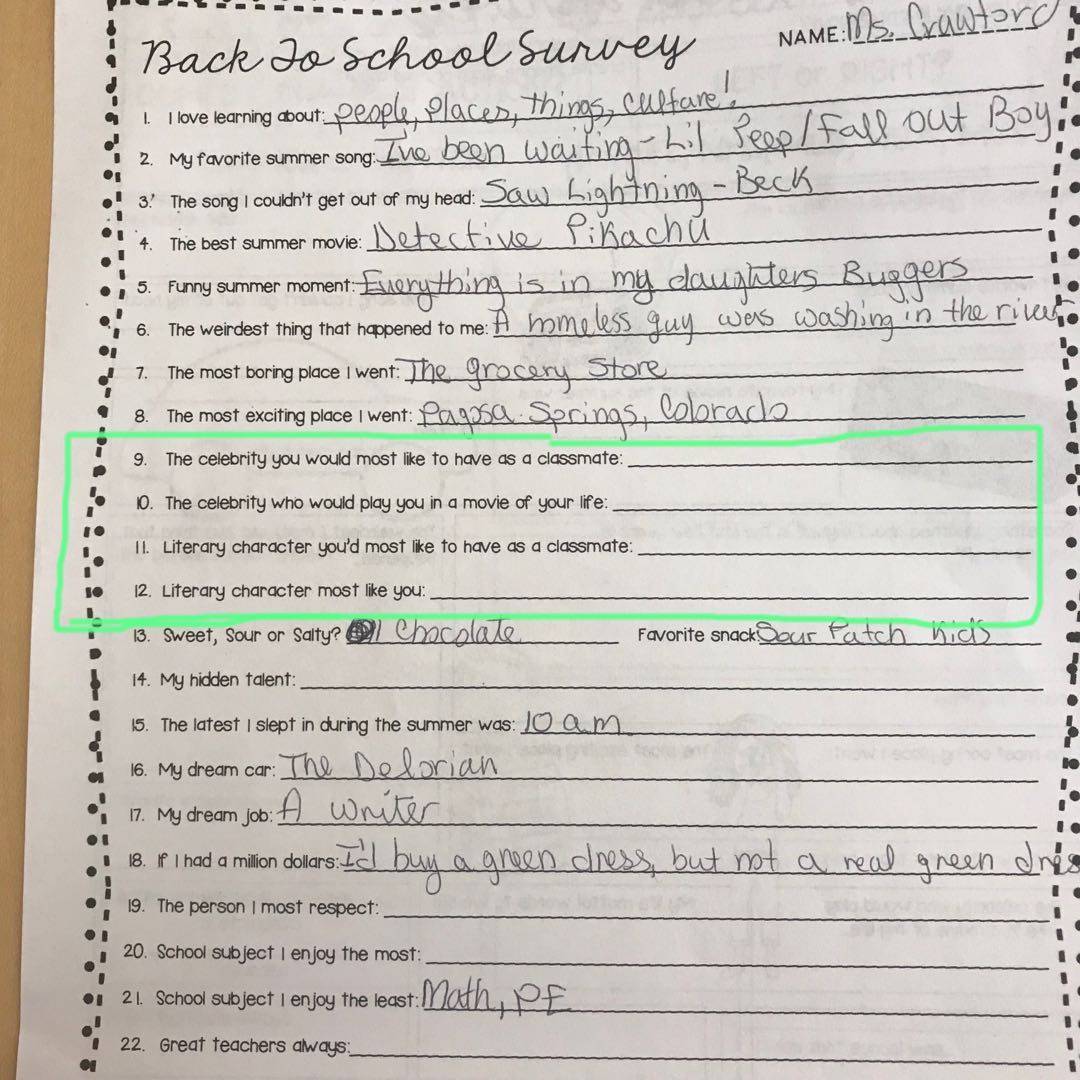 Back To School Survey
NAME: Ms. Crawford
1. I love learning about: people, places, things, culture!
2. My favorite summer song: I've been waiting - Lil Peep/Fall Out Boy
3. The song I couldn't get out of my head: Saw Lightning - Beck
4. The best summer movie: Detective Pikachu
5. Funny summer moment: Everything is in my daughters Buggers
6. The weirdest thing that happened to me: A homeless guy was washing in the river
7. The most boring place I went: The grocery Store
8. The most exciting place I went: Pagosa Springs, Colorado
9. The celebrity you would most like to have as a classmate:
10. The celebrity who would play you in a movie of your life:
11. Literary character you'd most like to have as a classmate:
12. Literary character most like you:
13. Sweet, Sour or Salty? Chocolate Favorite snack: Sour Patch Kids
14. My hidden talent:
15. The latest I slept in during the summer was: 10 a.m
16. My dream car: The Delorian
17. My dream job: A writer
18. If I had a million dollars: I'd buy a green dress, but not a real green dres
19. The person I most respect:
20. School subject I enjoy the most:
21. School subject I enjoy the least: Math, PE
22. Great teachers always: